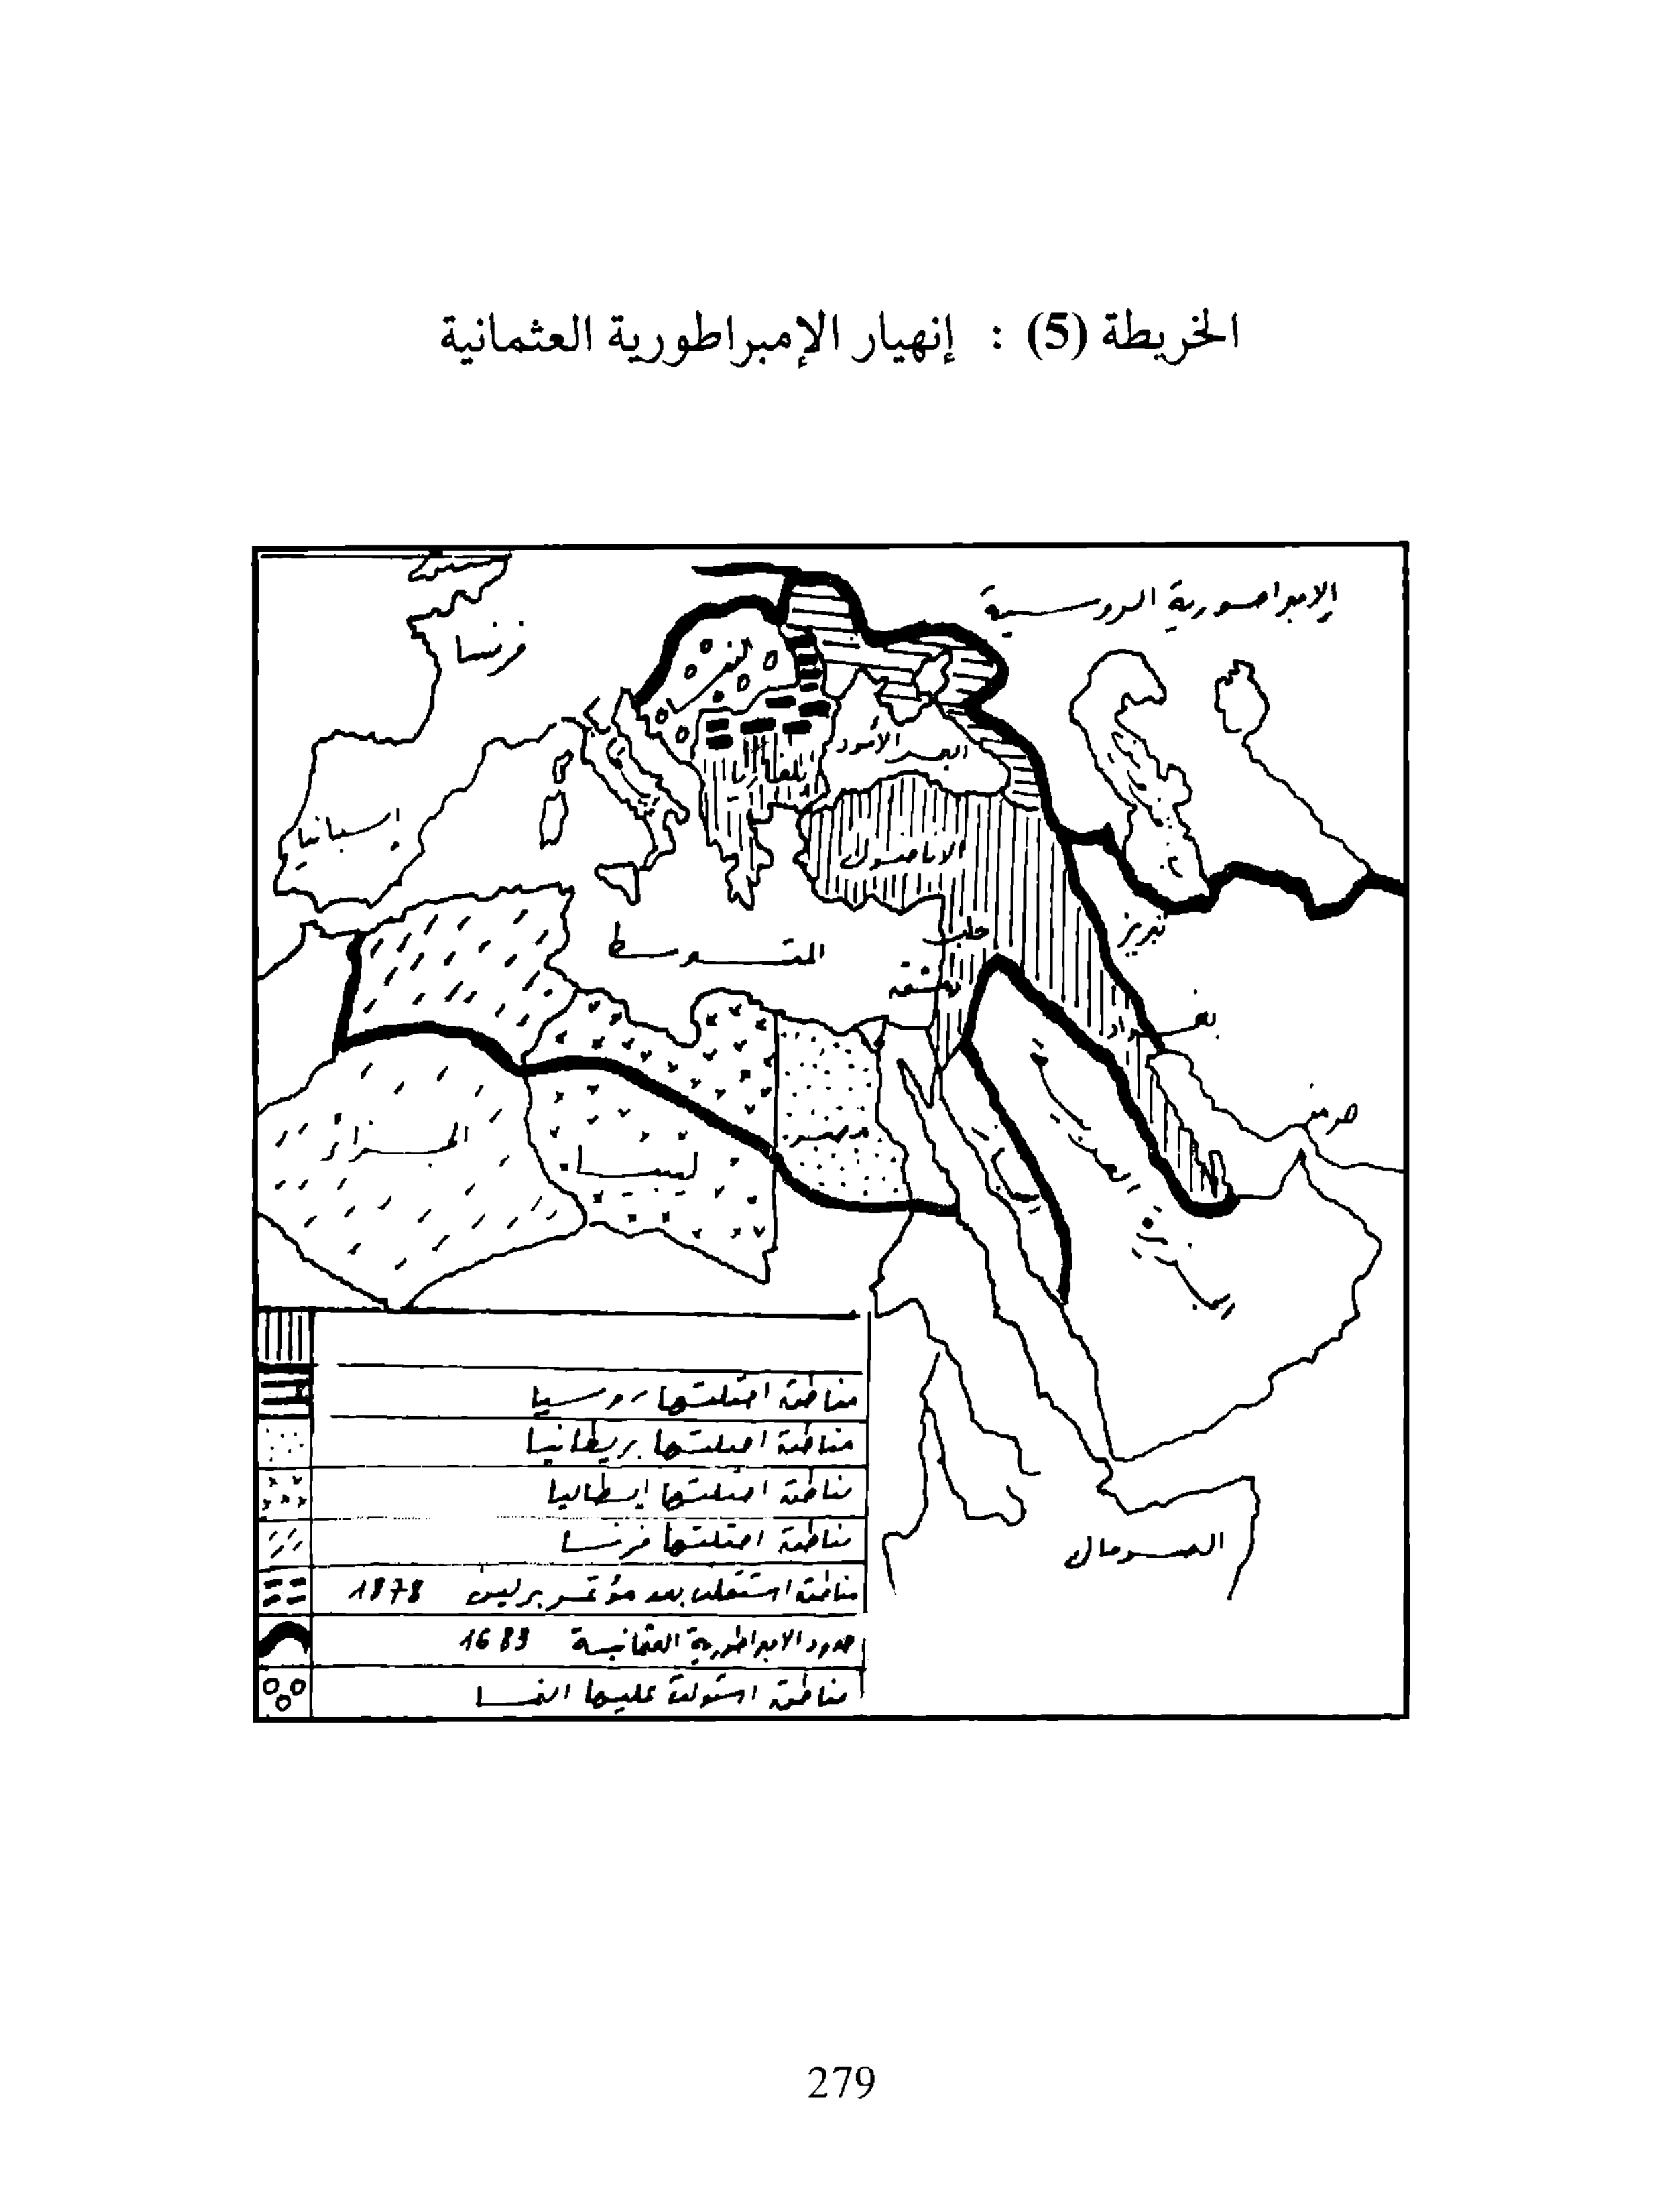 الخريطة (5) : إنهيار الإمبراطورية العثمانية
الإمبراطورية الروسية
فرنسا
البحر الأسود
بلغاريا
اسبانيا
الاناضول
تبريز
حلب
المتوسط
دمشق
بغداد
هرمز
مصر
الجزائر
ليبيا
مناطق احتلتها روسيا
مناطق احتلتها بريطانيا
مناطق احتلتها إيطاليا
مناطق احتلتها فرنسا
الصومال
مناطق استقلت بعد مؤتمر برلين 1878
حدود الامبراطورية العثمانية 1683
مناطق استولت عليها النمسا
279